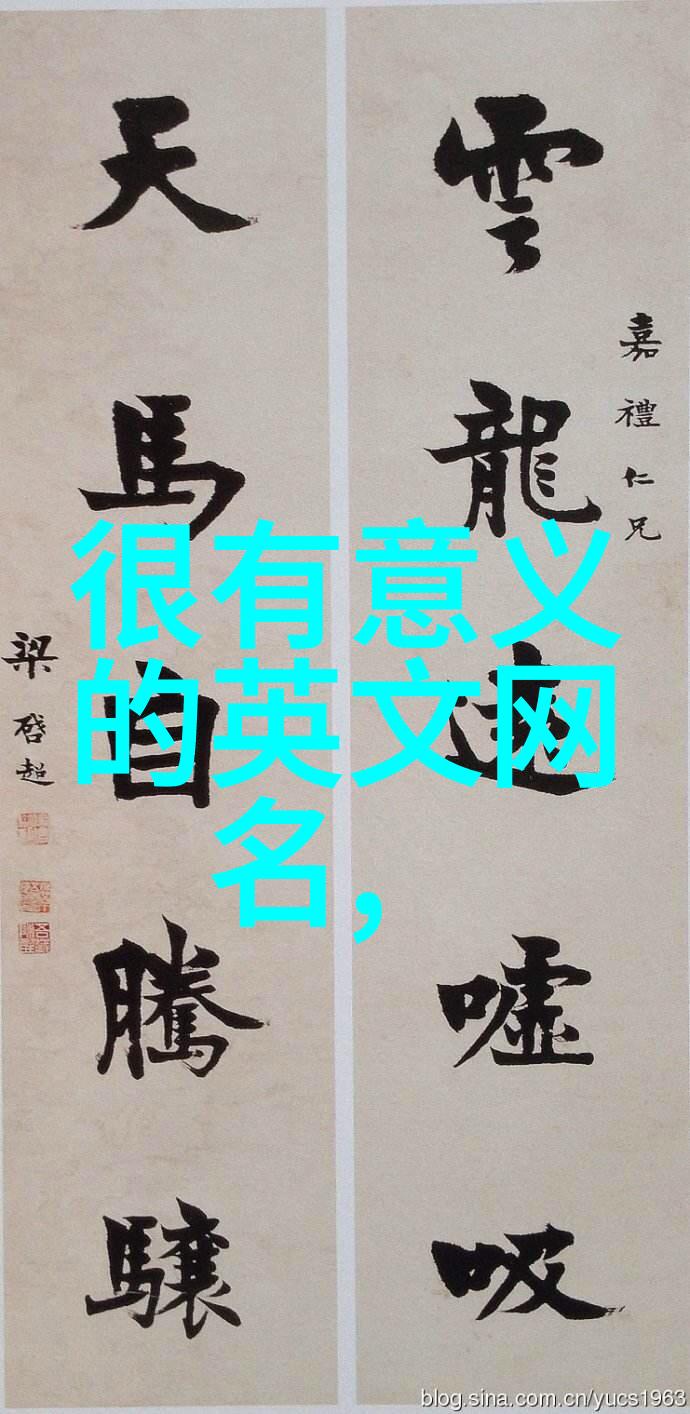 雲龍噓吸
嘉禮仁兄
天馬自騰驤
梁啓超
很有意义
的英文网
名，
blog.sina.com.cn/yucs1963